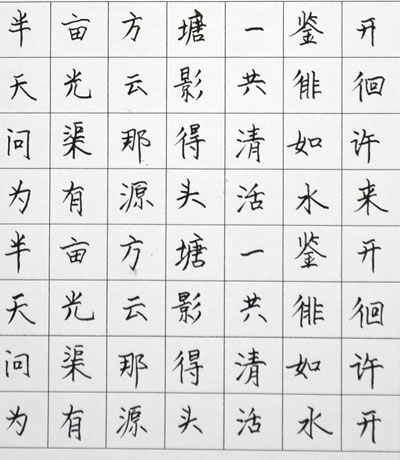 半亩方塘一鉴开
天光云影共徘徊
问渠那得清如许
为有源头活水来
半亩方塘一鉴开
天光云影共徘徊
问渠那得清如许
为有源头活水开